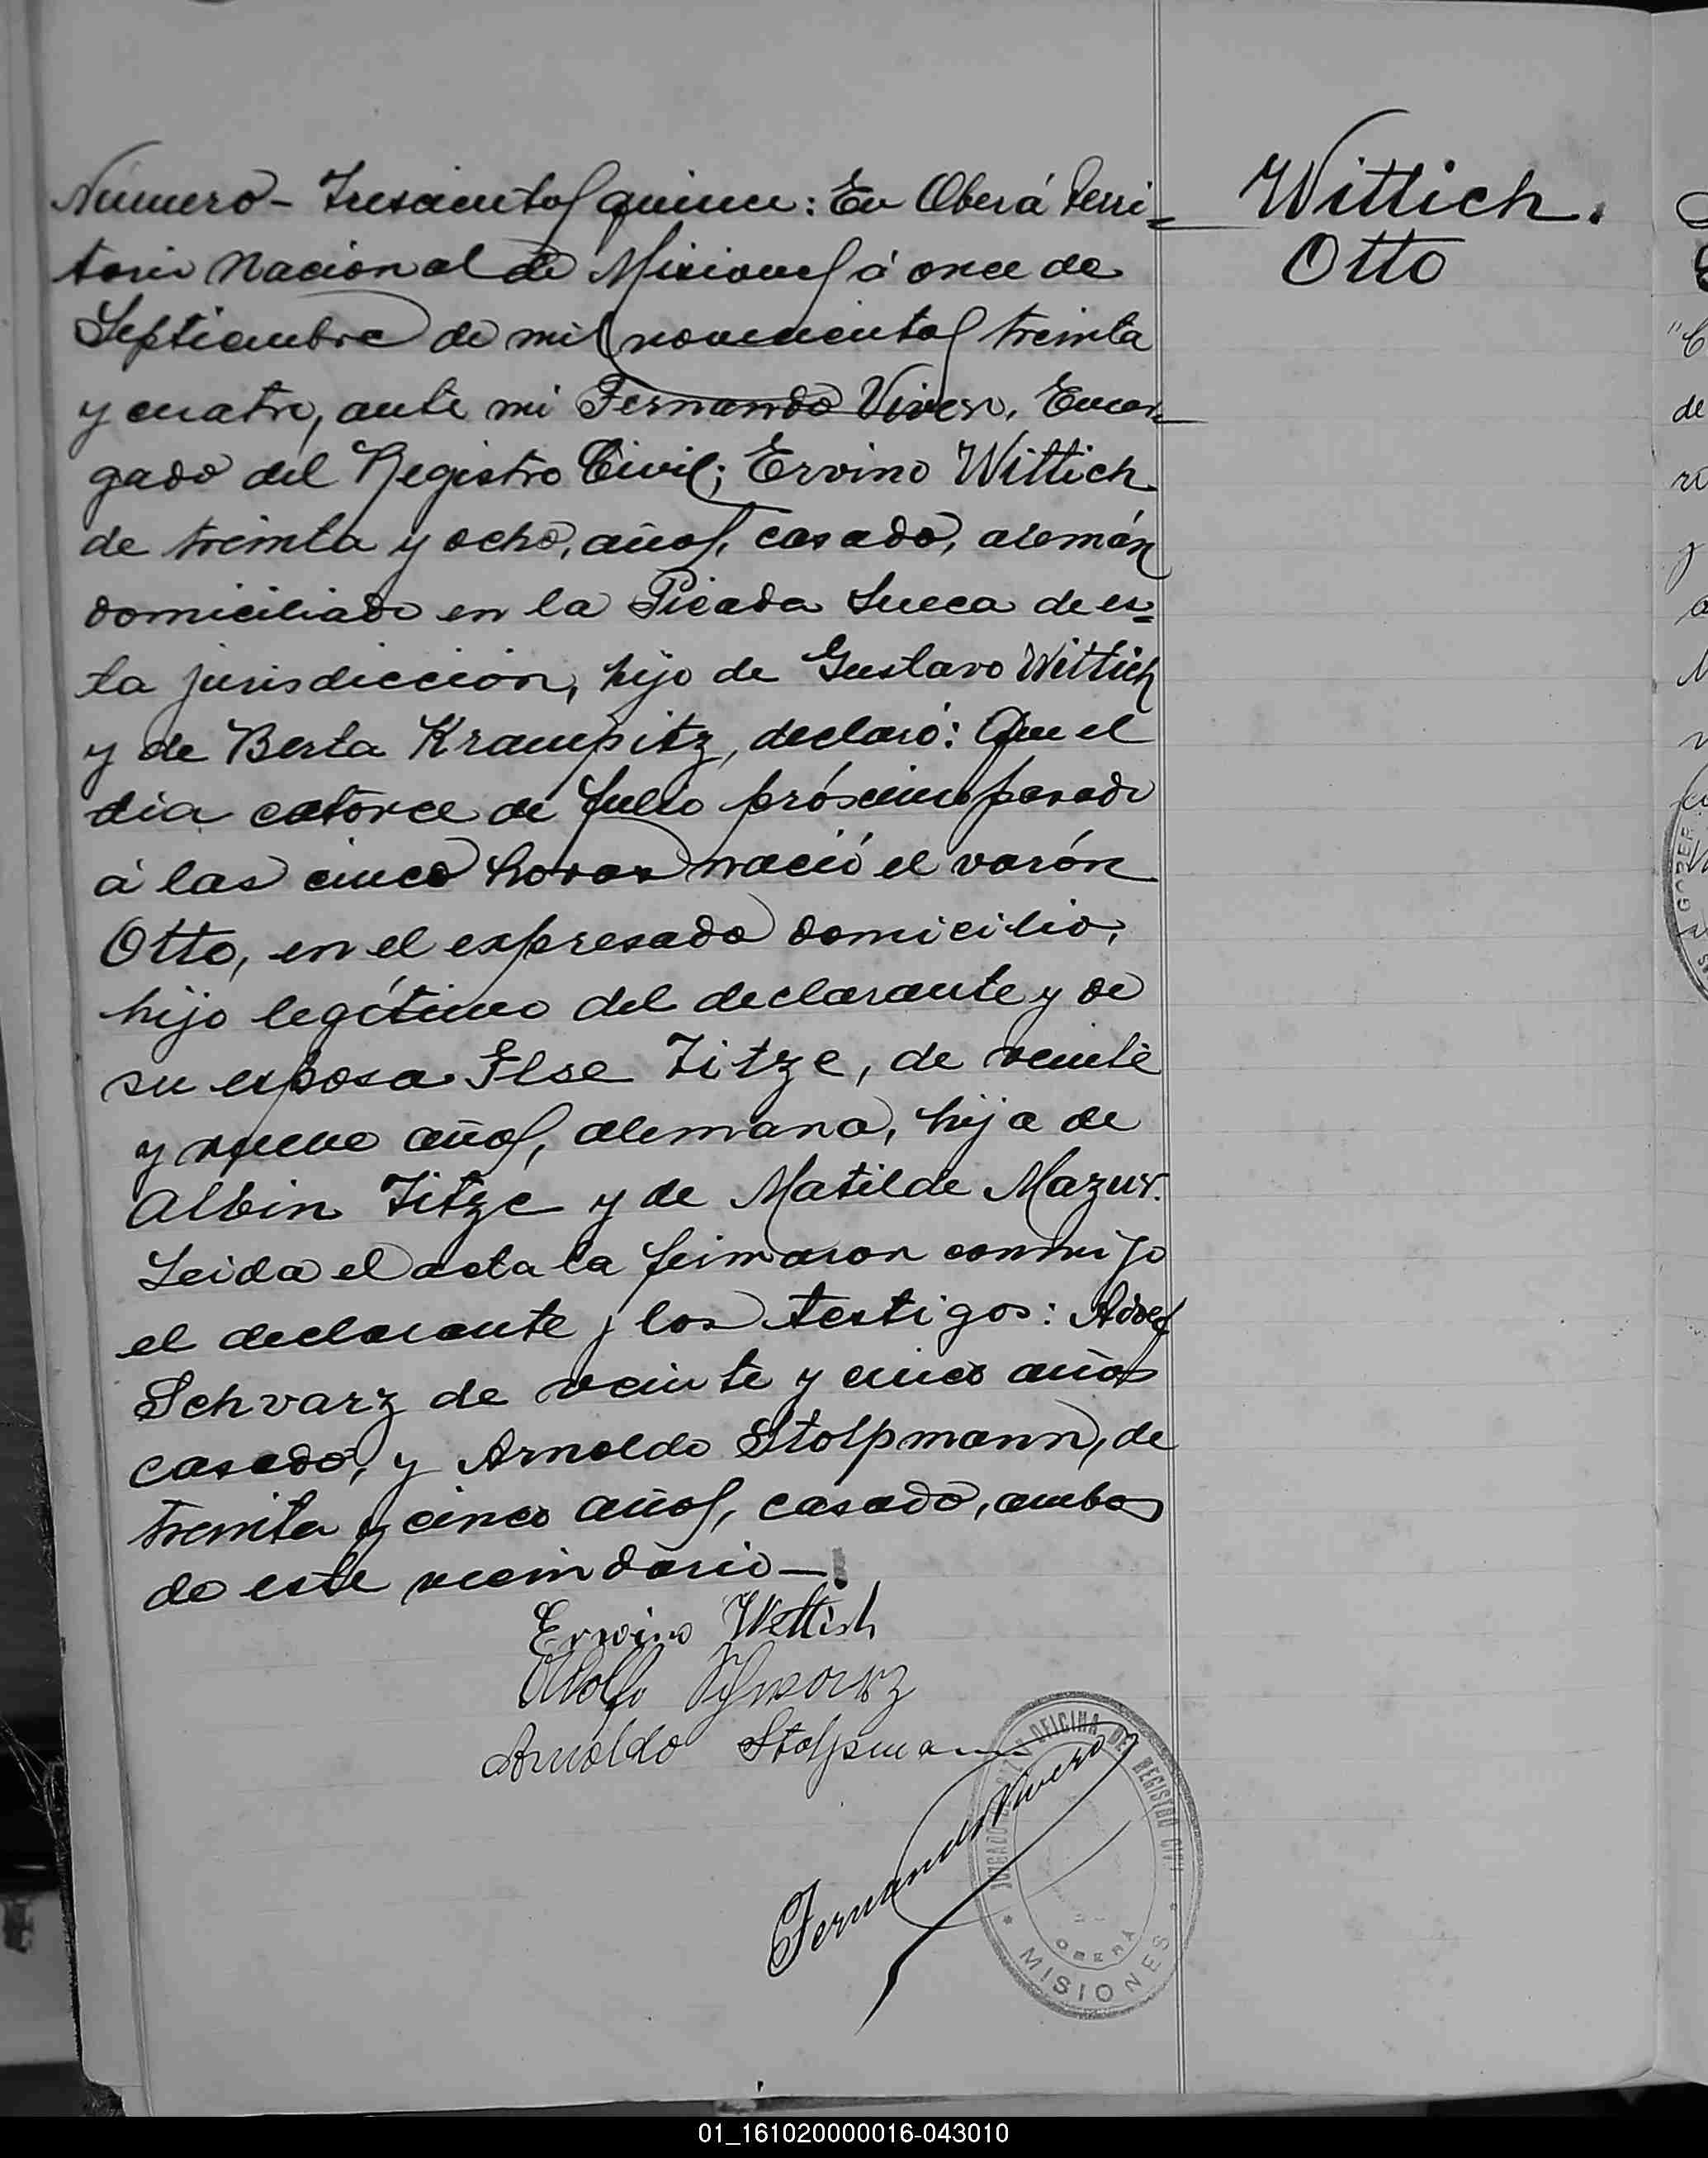 Wittich.
Otto
Número - Trescientos quince: En Oberá Terri=
torio Nacional de Misiones á once de
Septiembre de mil novecientos treinta
y cuatro, ante mi Fernando Vivero, Encar=
gado del Registro Civil; Ervino Wittich
de treinta y ocho, años, casado, alemán
domiciliado en la Picada Sueca de es=
ta jurisdicción, hijo de Gustavo Wittich
y de Berta Krampitz, declaró: Que el
dia catorce de Julio próximo pasado
á las cinco horas nació el varón
Otto, en el expresado domicilio,
hijo legítimo del declarante y de
su esposa Ilse Titze, de veinte
y nueve años, alemana, hija de
Albin Titze y de Matilde Mazur.
Leida el acta la firmaron conmigo
el declarante y los testigos: Adolf
Schvarz de veinte y cinco años
casado, y Arnoldo Stolpmann, de
treinta y cinco años, casado, ambos
de este vecindario -.
Erwino Wittich
Adolfo Schwarz
Arnoldo Stolpmann
Fernando Vivero
OFICINA DEL REGISTRO CIVIL
JUZGADO
OBERÁ
MISIONES
01_161020000016-043010